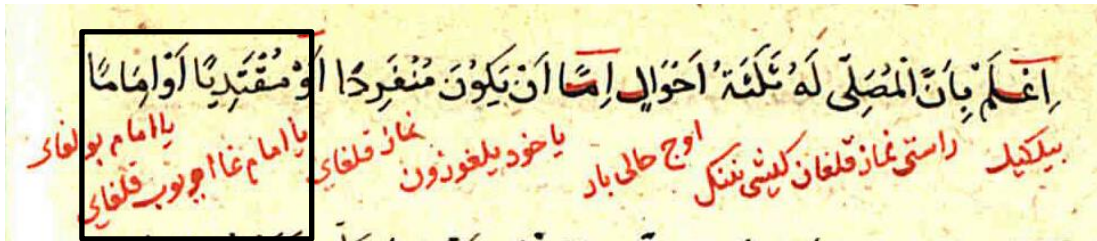 اِعْلَمْ بِاَنَّ الْمُصَلِّى لَهُ ثَلَثَةُ اَحْوَالٍ اِمَّا اَنْ يَكُوْنَ مُنْفَرِدًا اَوْ مُقْتَدِيًا اَوْ اِمَامًا
بيلكيل راستى نماز قلغان كيشى ننك اوج حالى بار يا خود يلغوزون نماز قلغاى يا امام غا اويوب قلغاى يا امام بولغاى